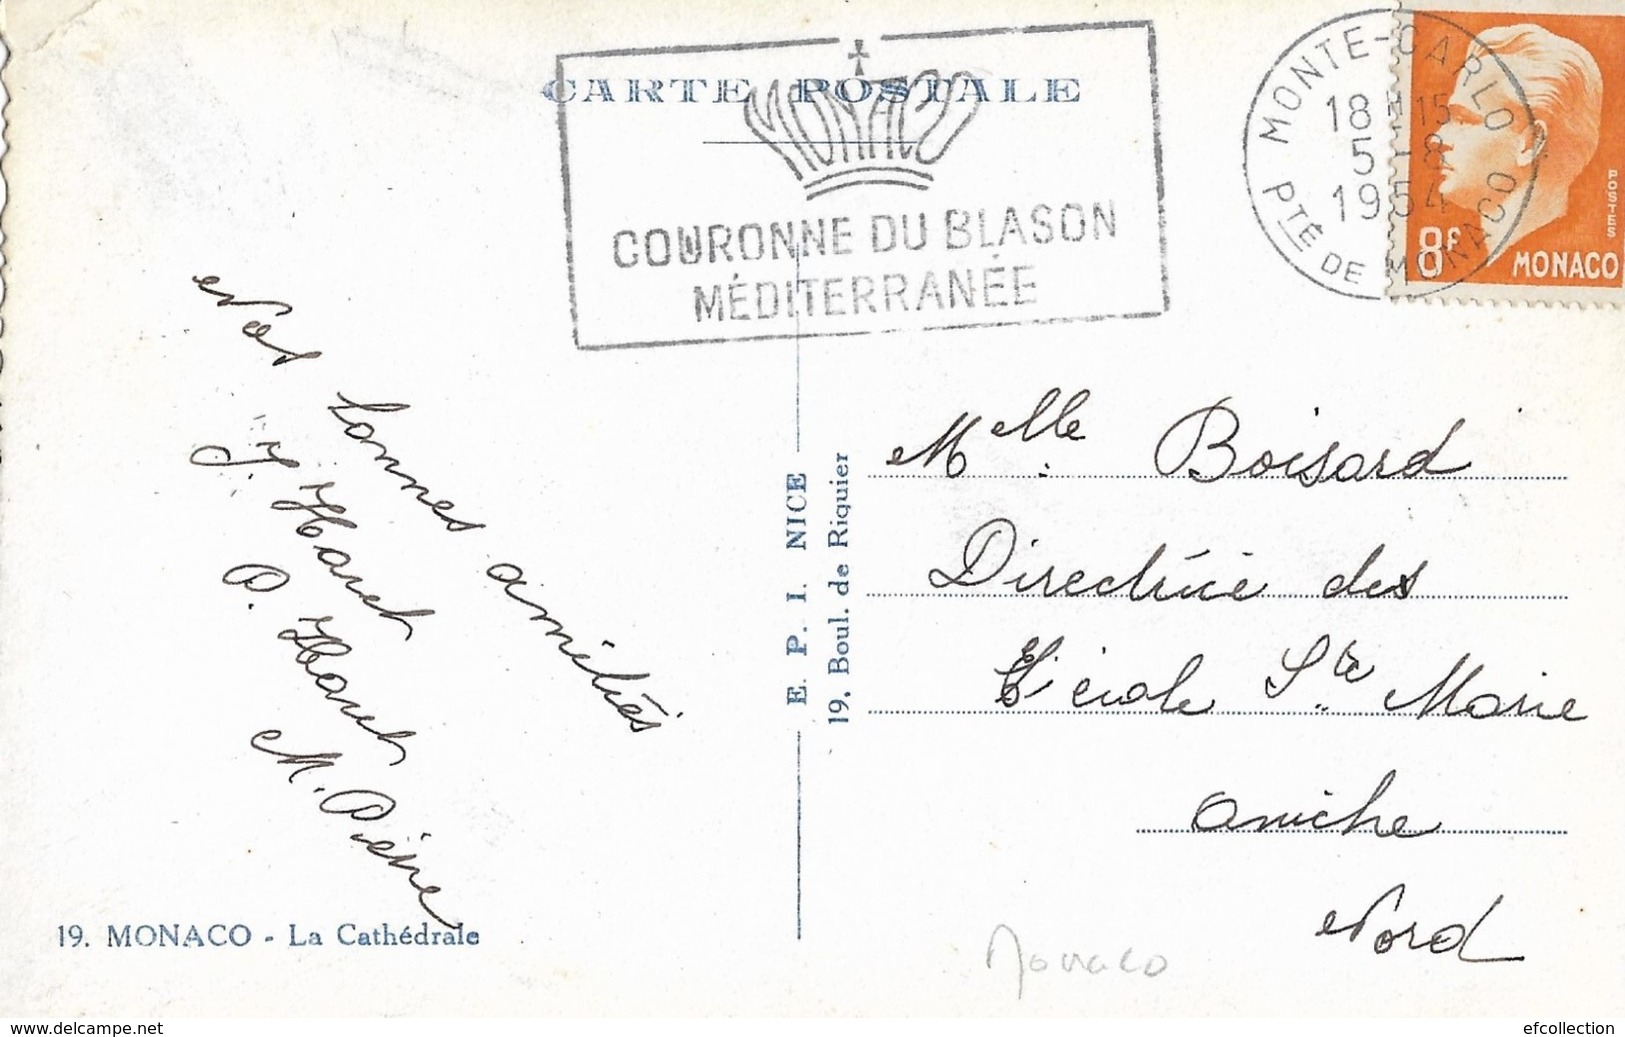 CARTE POSTALE
MONACO
COURONNE DU BLASON
MÉDITERRANÉE
MONTE-CARLO
18 H 15
5 - 8
1954
PTÉ DE MONACO
POSTES
8F
MONACO
Nos bonnes amitiés
J. Hanet
P. Hanet
M. Pierre
E. P. I. NICE
19, Boul. de Riquier
Melle Boisard
Directrice des
école Ste Marie
Aniche
Nord
19. MONACO - La Cathédrale
Monaco
www.delcampe.net
efcollection